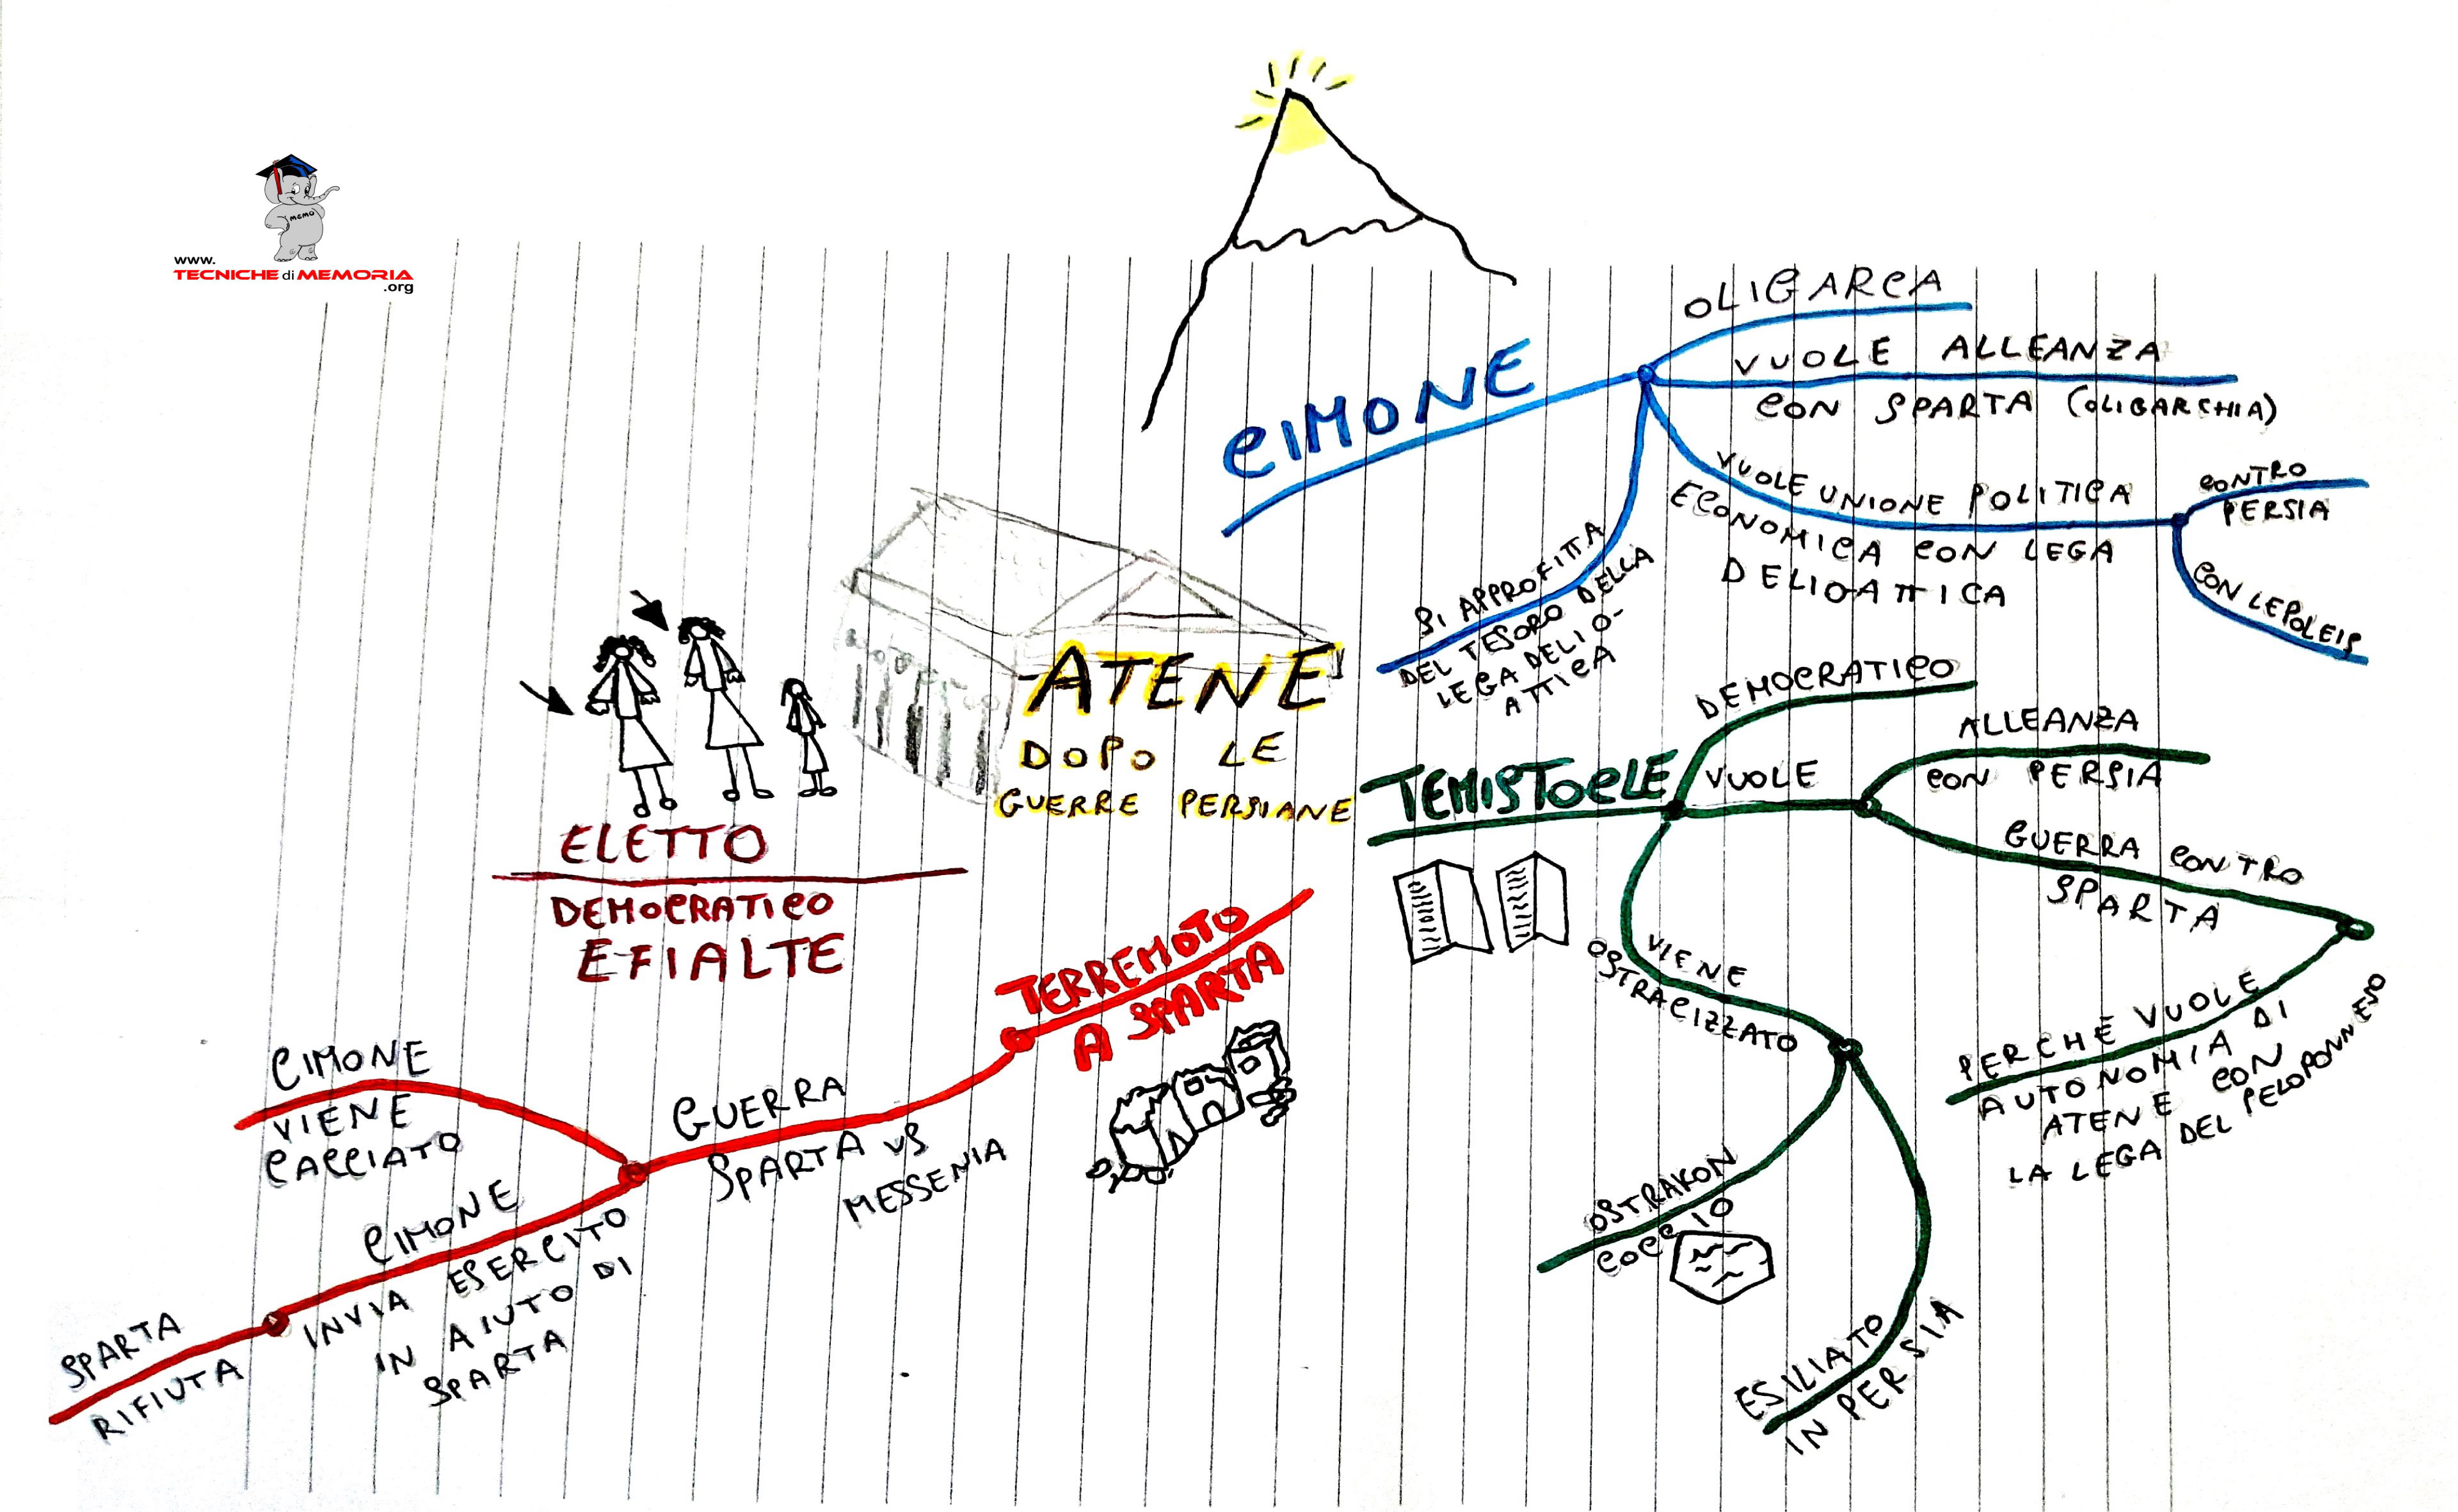 MEMO
www.
TECNICHE di MEMORIA
.org
CIMONE
OLIGARCA
VUOLE ALLEANZA
CON SPARTA (OLIGARCHIA)
VUOLE UNIONE POLITICA
ECONOMICA CON LEGA
DELIO-ATTICA
CONTRO
PERSIA
CON LE POLEIS
SI APPROFITTA
DEL TESORO DELLA
LEGA DELIO-
ATTICA
ATENE
DOPO LE
GUERRE PERSIANE
TEMISTOCLE
DEMOCRATICO
VUOLE
ALLEANZA
CON PERSIA
GUERRA CONTRO
SPARTA
PERCHÉ VUOLE
AUTONOMIA DI
ATENE CON
LA LEGA DEL PELOPONNESO
VIENE
OSTRACIZZATO
OSTRAKON
COCCIO
ESILIATO
IN PERSIA
TERREMOTO
A SPARTA
GUERRA
SPARTA VS
MESSENIA
CIMONE
VIENE
CACCIATO
CIMONE
INVIA ESERCITO
IN AIUTO DI
SPARTA
SPARTA
RIFIUTA
ELETTO
DEMOCRATICO
EFIALTE